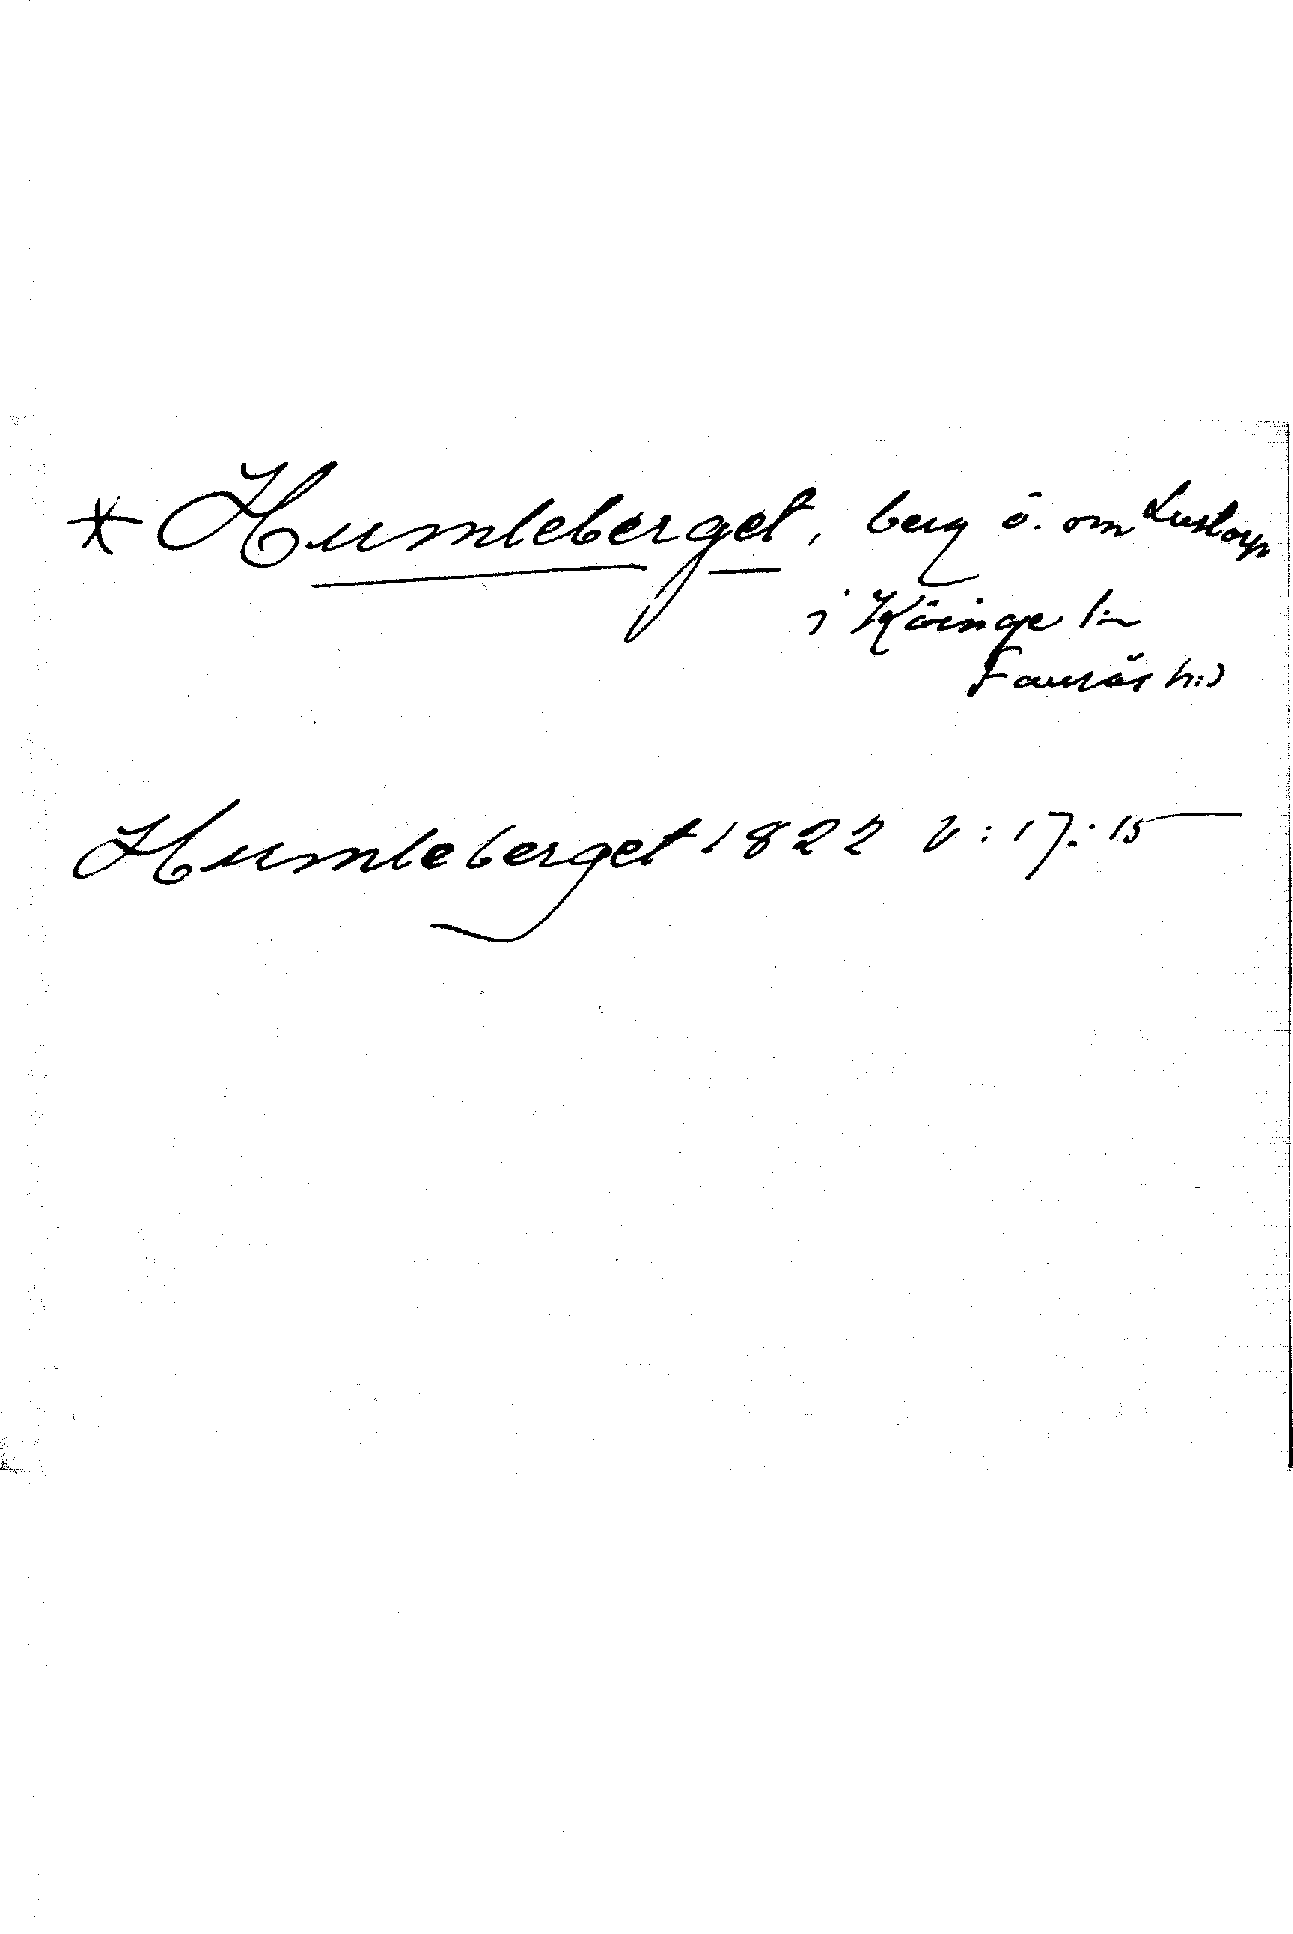 * Humleberget, berg ö. om Lustorp
i Köinge sn
Faurås hd
Humleberget 1822 V:17:15